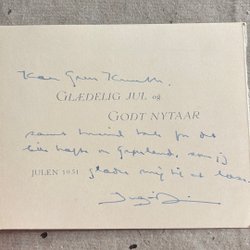 Kære Grev Knuth.
GLÆDELIG JUL og
GODT NYTAAR
samt tusind tak for det
lille hæfte om Grønland, som jeg
JULEN 1951 glæder mig til at læse.